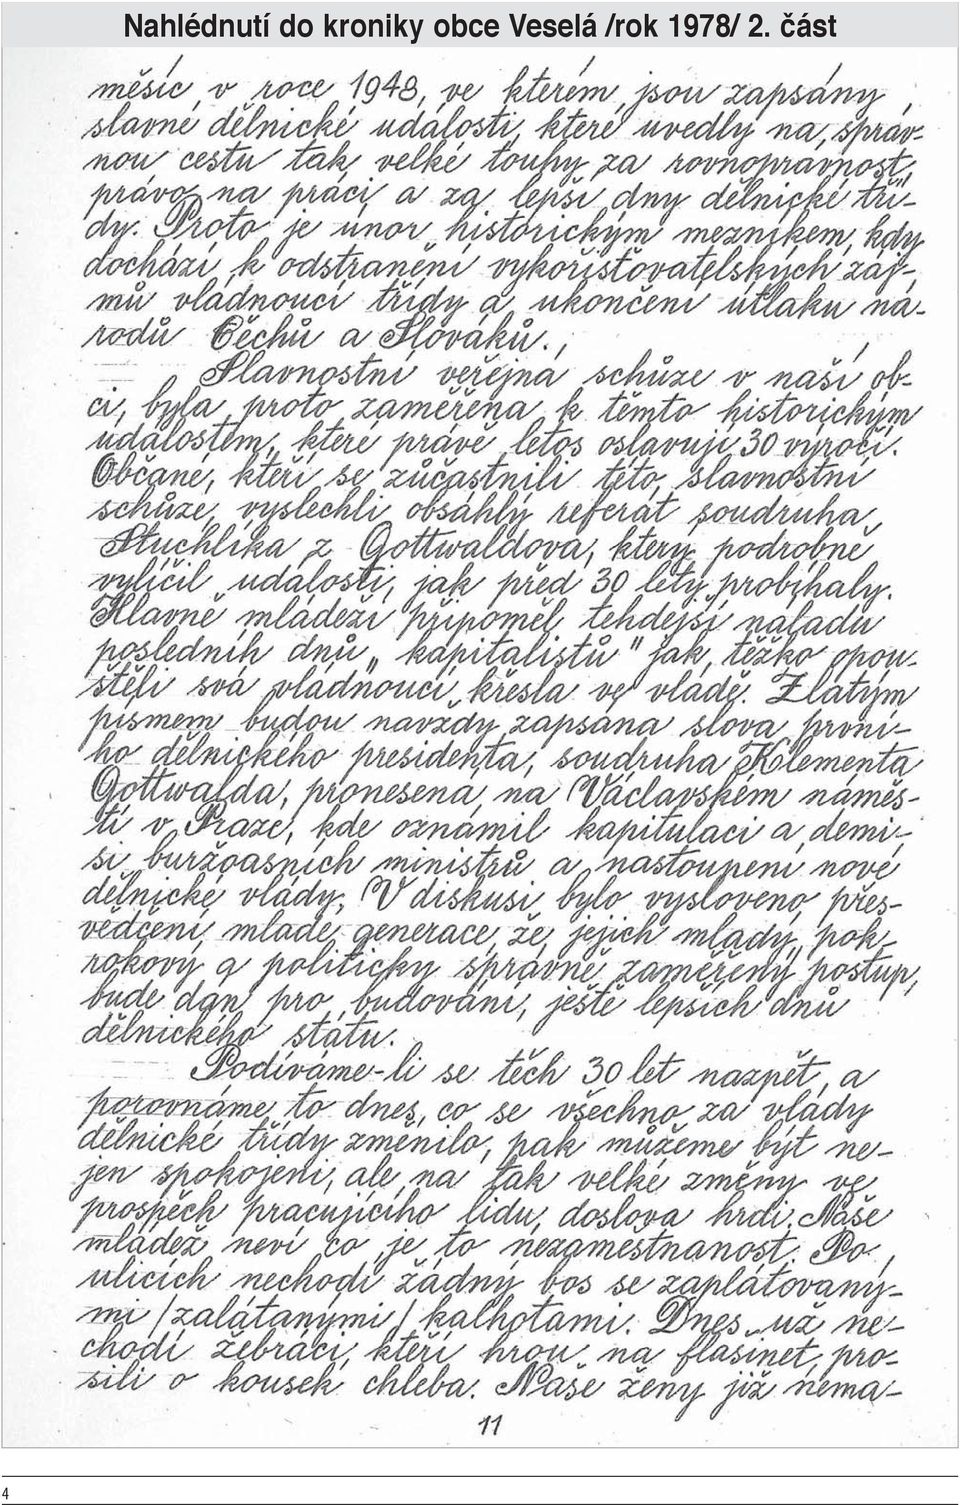 Nahlédnutí do kroniky obce Veselá /rok 1978/ 2. část
měsíc v roce 1948, ve kterém jsou zapsány
slavné dělnické události, které uvedly na správ-
nou cestu tak velké touhy za rovnoprávnost,
právo na práci a za lepší dny dělnické tří-
dy. Proto je únor historickým mezníkem, kdy
dochází k odstranění vykořisťovatelských záj-
mů vládnoucí třídy a ukončení útlaku ná-
rodů Čechů a Slováků.
Slavnostní veřejná schůze v naší ob-
ci, byla proto zaměřena k těmto historickým
událostem, které právě letos oslavují 30 výročí.
Občané, kteří se zůčastnili této slavnostní
schůze, vyslechli obsáhlý referát soudruha
Stuchlíka z Gottwaldova, který podrobně
vylíčil události, jak před 30 lety probíhaly.
Hlavně mládeži připoměl tehdejší náladu
posledních dnů „kapitalistů" jak těžko opou-
štěli svá vládnoucí křesla ve vládě. Zlatým
písmem budou navždy zapsána slova první-
ho dělnického presidenta, soudruha Klementa
Gottwalda, pronesená na Václavském náměs-
tí v Praze, kde oznámil kapitulaci a demi-
si buržoasních ministrů a nastoupení nové
dělnické vlády. V diskusi bylo vysloveno přes-
vědčení mladé generace, že jejich mladý, pok-
rokový a politicky správně zaměřený postup,
bude dán pro budování, ještě lepších dnů
dělnického státu.
Podíváme-li se těch 30 let nazpět, a
porovnáme to dnes, co se všechno za vlády
dělnické třídy změnilo, pak můžeme být ne-
jen spokojeni, ale na tak velké změny ve
prospěch pracujícího lidu, doslova hrdi. Naše
mládež neví co je to nezaměstnanost. Po
ulicích nechodí žádný bos se zaplátovaný-
mi /zalátanými/ kalhotami. Dnes už ne-
chodí žebráci, kteří hrou na flašinet, pro-
sili o kousek chleba. Naše ženy již nema-
11
4